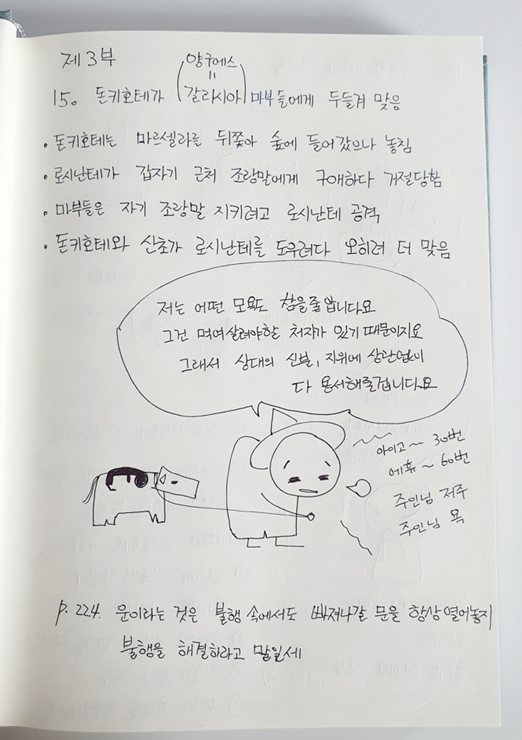 제3부
양구에스
=
15。 돈키호테가 갈라시아 마부들에게 두들겨 맞음
• 돈키호테는 마르셀라를 뒤쫓아 숲에 들어갔으나 놓침
• 로시난테가 갑자기 근처 조랑말에게 구애하다 거절당함
• 마부들은 자기 조랑말 지키려고 로시난테 공격
• 돈키호테와 산초가 로시난테를 도우려다 오히려 더 맞음
저는 어떤 모욕도 참을줄압니다요
그건 먹여살려야할 처자가 있기 때문이지요
그래서 상대의 신분, 지위에 상관없이
다 용서해줄겁니다요
아이고~ 30번
에휴~ 60번
주인님 저주
주인님 욕
p. 224. 운이라는 것은 불행 속에서도 빠져나갈 문을 항상 열어놓지
불행을 해결하라고 말일세